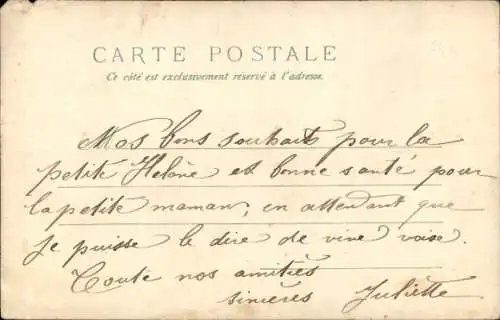 CARTE POSTALE
Ce côté est exclusivement réservé à l'adresse.
Mos bons souhaits pour la
petite Helène et bonne santé pour
la petite maman, en attendant que
je puisse le dire de vive voise.
Toute nos amitiés
sincères Juliette